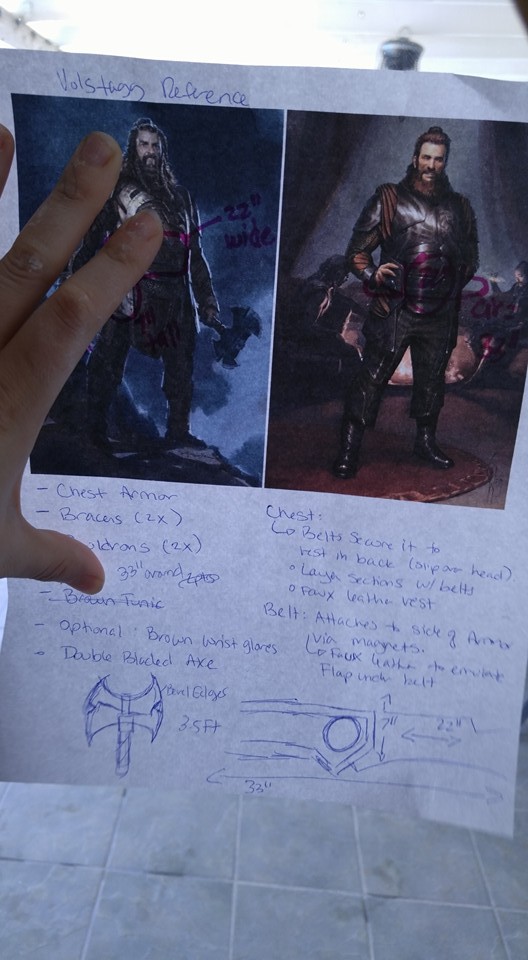 Volstagg Reference
22"
wide
- Chest Armor
- Bracers (2x)
(2x)
33" around
- Brown Tunic
- Optional: Brown wrist gloves
Double Bladed Axe
Bevel Edges
3.5 Ft
Chest:
Belts secure it to
rest in back (slip over head)
Layer sections w/ belts
Faux leather vest
Belt: Attaches to side of Armor
via magnets.
Faux leather to emulate
Flap under belt
7"
22"
33"